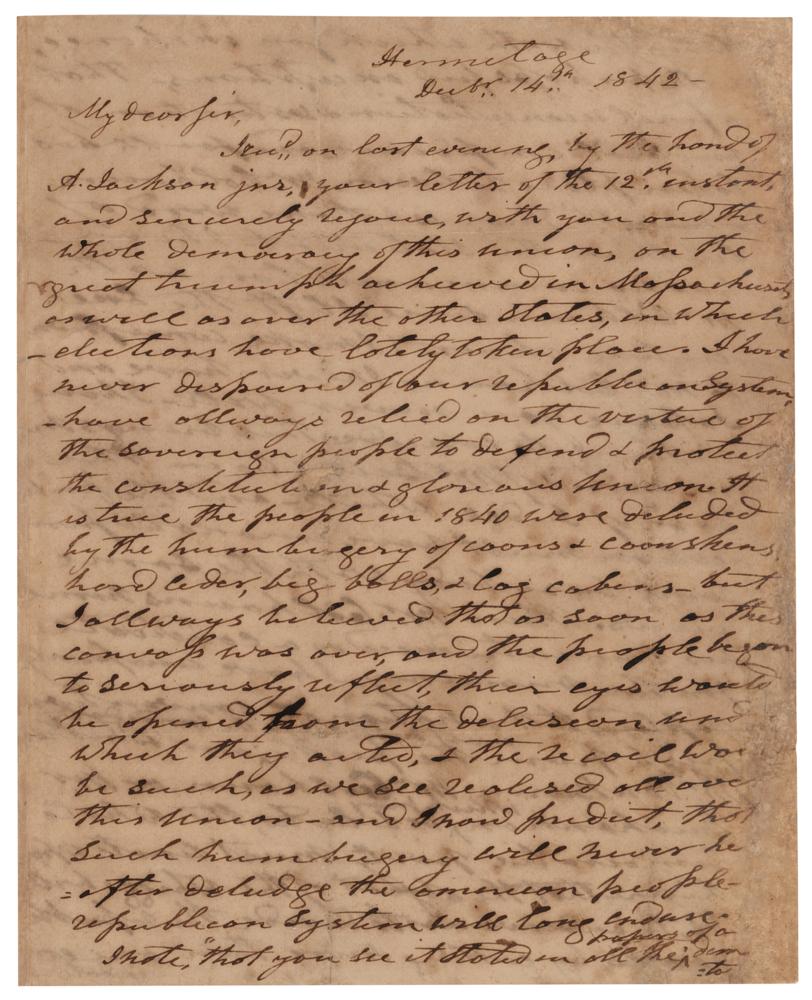 Hermitage
Decbr. 14th. 1842 -
My dear sir,
I recd. on last evening, by the hand of
A. Jackson jnr, your letter of the 12th. instant,
and sincerely rejoice, with you and the
whole democracy of this union, on the
great triumph achieved in Massachusetts
as well as over the other States, in which
elections have lately token place. I have
never despaired of our republican System,
have allways relied on the virtue of
the sovereign people to defend & protect
the constitution & glorious Union. It
is true the people in 1840 were deluded
by the humbugery of coons & coonskins,
hard ceder, big balls, & log cabins - but
I allways believed that as soon as this
canvass was over, and the people began
to seriously reflect, their eyes would
be opened from the delusion und
which they acted, & the recoil wo
be such, as we see realised all over
this Union - and I now predict, that
such humbugery will never he
=after deludge the american people -
republican System will long endure.
papers of a
I note, "that you see it stated in all the dem
=to